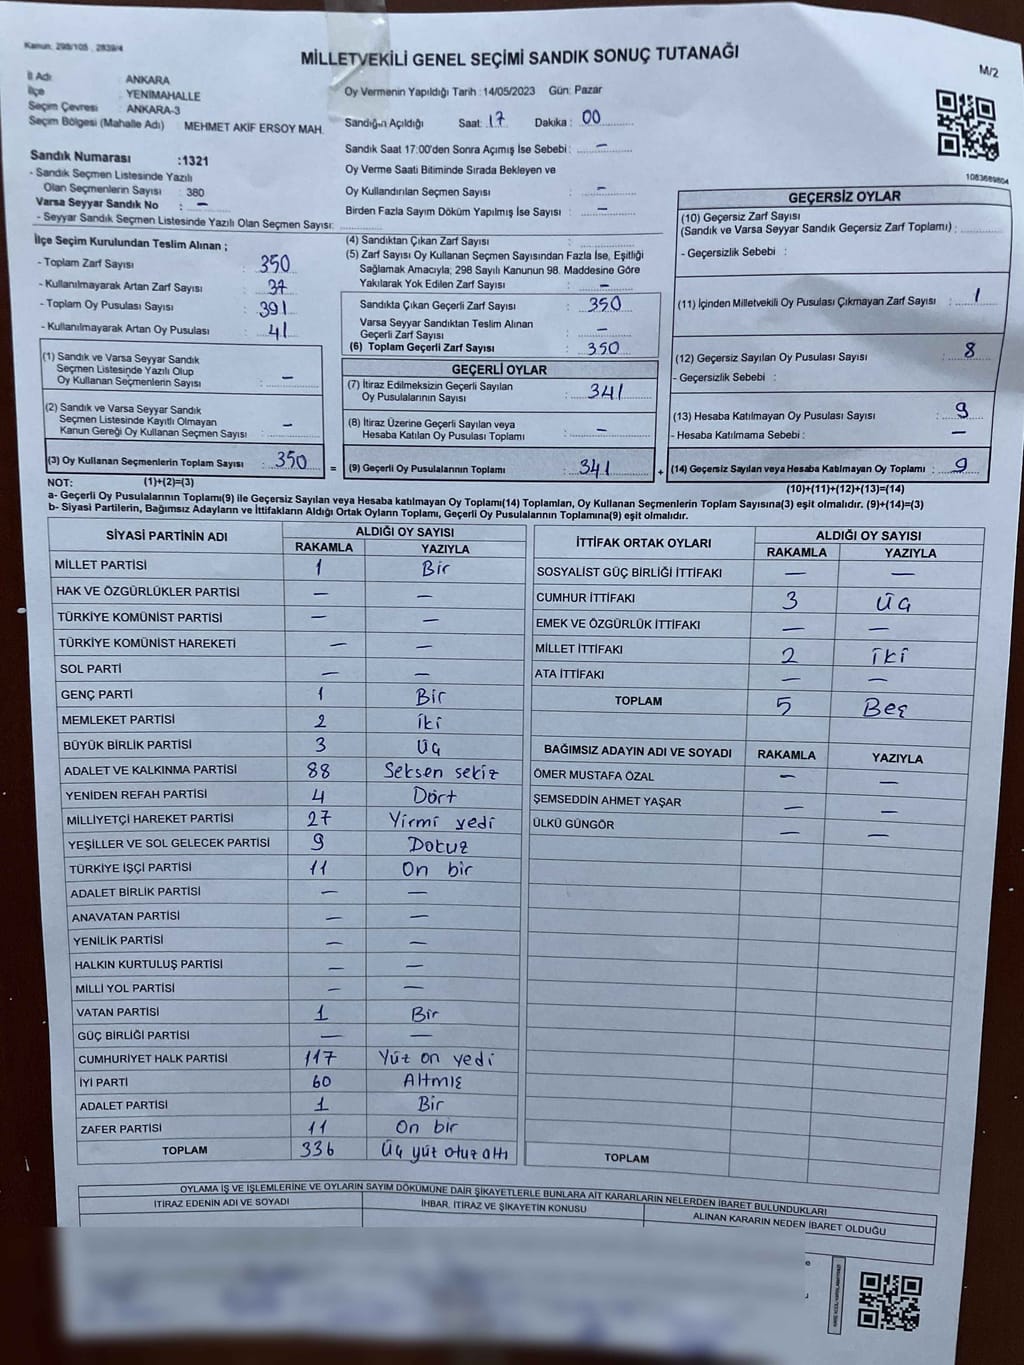 Kanun: 298/105 , 2839/4
MİLLETVEKİLİ GENEL SEÇİMİ SANDIK SONUÇ TUTANAĞI
M/2
İl Adı : ANKARA
İlçe : YENİMAHALLE
Seçim Çevresi : ANKARA-3
Seçim Bölgesi (Mahalle Adı) : MEHMET AKİF ERSOY MAH.
Sandık Numarası :1321
- Sandık Seçmen Listesinde Yazılı
Olan Seçmenlerin Sayısı : 380
Varsa Seyyar Sandık No : –
- Seyyar Sandık Seçmen Listesinde Yazılı Olan Seçmen Sayısı:
Oy Vermenin Yapıldığı Tarih : 14/05/2023 Gün: Pazar
Sandığın Açıldığı Saat: 17 Dakika : 00
Sandık Saat 17:00'den Sonra Açımış İse Sebebi : –
Oy Verme Saati Bitiminde Sırada Bekleyen ve
Oy Kullandırılan Seçmen Sayısı : –
Birden Fazla Sayım Döküm Yapılmış İse Sayısı : –
1083689804
İlçe Seçim Kurulundan Teslim Alınan ;
- Toplam Zarf Sayısı : 350
- Kullanılmayarak Artan Zarf Sayısı : 37
- Toplam Oy Pusulası Sayısı : 391
- Kullanılmayarak Artan Oy Pusulası : 41
(1) Sandık ve Varsa Seyyar Sandık
Seçmen Listesinde Yazılı Olup
Oy Kullanan Seçmenlerin Sayısı : –
(2) Sandık ve Varsa Seyyar Sandık
Seçmen Listesinde Kayıtlı Olmayan
Kanun Gereği Oy Kullanan Seçmen Sayısı : –
(3) Oy Kullanan Seçmenlerin Toplam Sayısı : 350
(1)+(2)=(3)
(4) Sandıktan Çıkan Zarf Sayısı :
(5) Zarf Sayısı Oy Kullanan Seçmen Sayısından Fazla İse, Eşitliği
Sağlamak Amacıyla; 298 Sayılı Kanunun 98. Maddesine Göre
Yakılarak Yok Edilen Zarf Sayısı : –
Sandıkta Çıkan Geçerli Zarf Sayısı : 350
Varsa Seyyar Sandıktan Teslim Alınan
Geçerli Zarf Sayısı : –
(6) Toplam Geçerli Zarf Sayısı : 350
GEÇERLİ OYLAR
(7) İtiraz Edilmeksizin Geçerli Sayılan
Oy Pusulalarının Sayısı : 341
(8) İtiraz Üzerine Geçerli Sayılan veya
Hesaba Katılan Oy Pusulası Toplamı : –
= (9) Geçerli Oy Pusulalarının Toplamı : 341
GEÇERSİZ OYLAR
(10) Geçersiz Zarf Sayısı
(Sandık ve Varsa Seyyar Sandık Geçersiz Zarf Toplamı) :
- Geçersizlik Sebebi :
(11) İçinden Milletvekili Oy Pusulası Çıkmayan Zarf Sayısı : 1
(12) Geçersiz Sayılan Oy Pusulası Sayısı : 8
- Geçersizlik Sebebi :
(13) Hesaba Katılmayan Oy Pusulası Sayısı : 9
- Hesaba Katılmama Sebebi : –
+ (14) Geçersiz Sayılan veya Hesaba Katılmayan Oy Toplamı : 9
(10)+(11)+(12)+(13)=(14)
NOT:
a- Geçerli Oy Pusulalarının Toplamı(9) ile Geçersiz Sayılan veya Hesaba katılmayan Oy Toplamı(14) Toplamları, Oy Kullanan Seçmenlerin Toplam Sayısına(3) eşit olmalıdır. (9)+(14)=(3)
b- Siyasi Partilerin, Bağımsız Adayların ve İttifakların Aldığı Ortak Oyların Toplamı, Geçerli Oy Pusulalarının Toplamına(9) eşit olmalıdır.
SİYASİ PARTİNİN ADI ALDIĞI OY SAYISI
RAKAMLA YAZIYLA
MİLLET PARTİSİ 1 Bir
HAK VE ÖZGÜRLÜKLER PARTİSİ – –
TÜRKİYE KOMÜNİST PARTİSİ – –
TÜRKİYE KOMÜNİST HAREKETİ – –
SOL PARTİ – –
GENÇ PARTİ 1 Bir
MEMLEKET PARTİSİ 2 iki
BÜYÜK BİRLİK PARTİSİ 3 Üç
ADALET VE KALKINMA PARTİSİ 88 Seksen sekiz
YENİDEN REFAH PARTİSİ 4 Dört
MİLLİYETÇİ HAREKET PARTİSİ 27 Yirmi yedi
YEŞİLLER VE SOL GELECEK PARTİSİ 9 Dokuz
TÜRKİYE İŞÇİ PARTİSİ 11 On bir
ADALET BİRLİK PARTİSİ – –
ANAVATAN PARTİSİ – –
YENİLİK PARTİSİ – –
HALKIN KURTULUŞ PARTİSİ – –
MİLLİ YOL PARTİSİ – –
VATAN PARTİSİ 1 Bir
GÜÇ BİRLİĞİ PARTİSİ – –
CUMHURİYET HALK PARTİSİ 117 Yüz on yedi
İYİ PARTİ 60 Altmış
ADALET PARTİSİ 1 Bir
ZAFER PARTİSİ 11 On bir
TOPLAM 336 Üç yüz otuz altı
İTTİFAK ORTAK OYLARI ALDIĞI OY SAYISI
RAKAMLA YAZIYLA
SOSYALİST GÜÇ BİRLİĞİ İTTİFAKI – –
CUMHUR İTTİFAKI 3 Üç
EMEK VE ÖZGÜRLÜK İTTİFAKI – –
MİLLET İTTİFAKI 2 iki
ATA İTTİFAKI – –
TOPLAM 5 Beş
BAĞIMSIZ ADAYIN ADI VE SOYADI RAKAMLA YAZIYLA
ÖMER MUSTAFA ÖZAL – –
ŞEMSEDDİN AHMET YAŞAR – –
ÜLKÜ GÜNGÖR – –
TOPLAM
OYLAMA İŞ VE İŞLEMLERİNE VE OYLARIN SAYIM DÖKÜMÜNE DAİR ŞİKAYETLERLE BUNLARA AİT KARARLARIN NELERDEN İBARET BULUNDUKLARI
İTİRAZ EDENİN ADI VE SOYADI İHBAR, İTİRAZ VE ŞİKAYETİN KONUSU ALINAN KARARIN NEDEN İBARET OLDUĞU